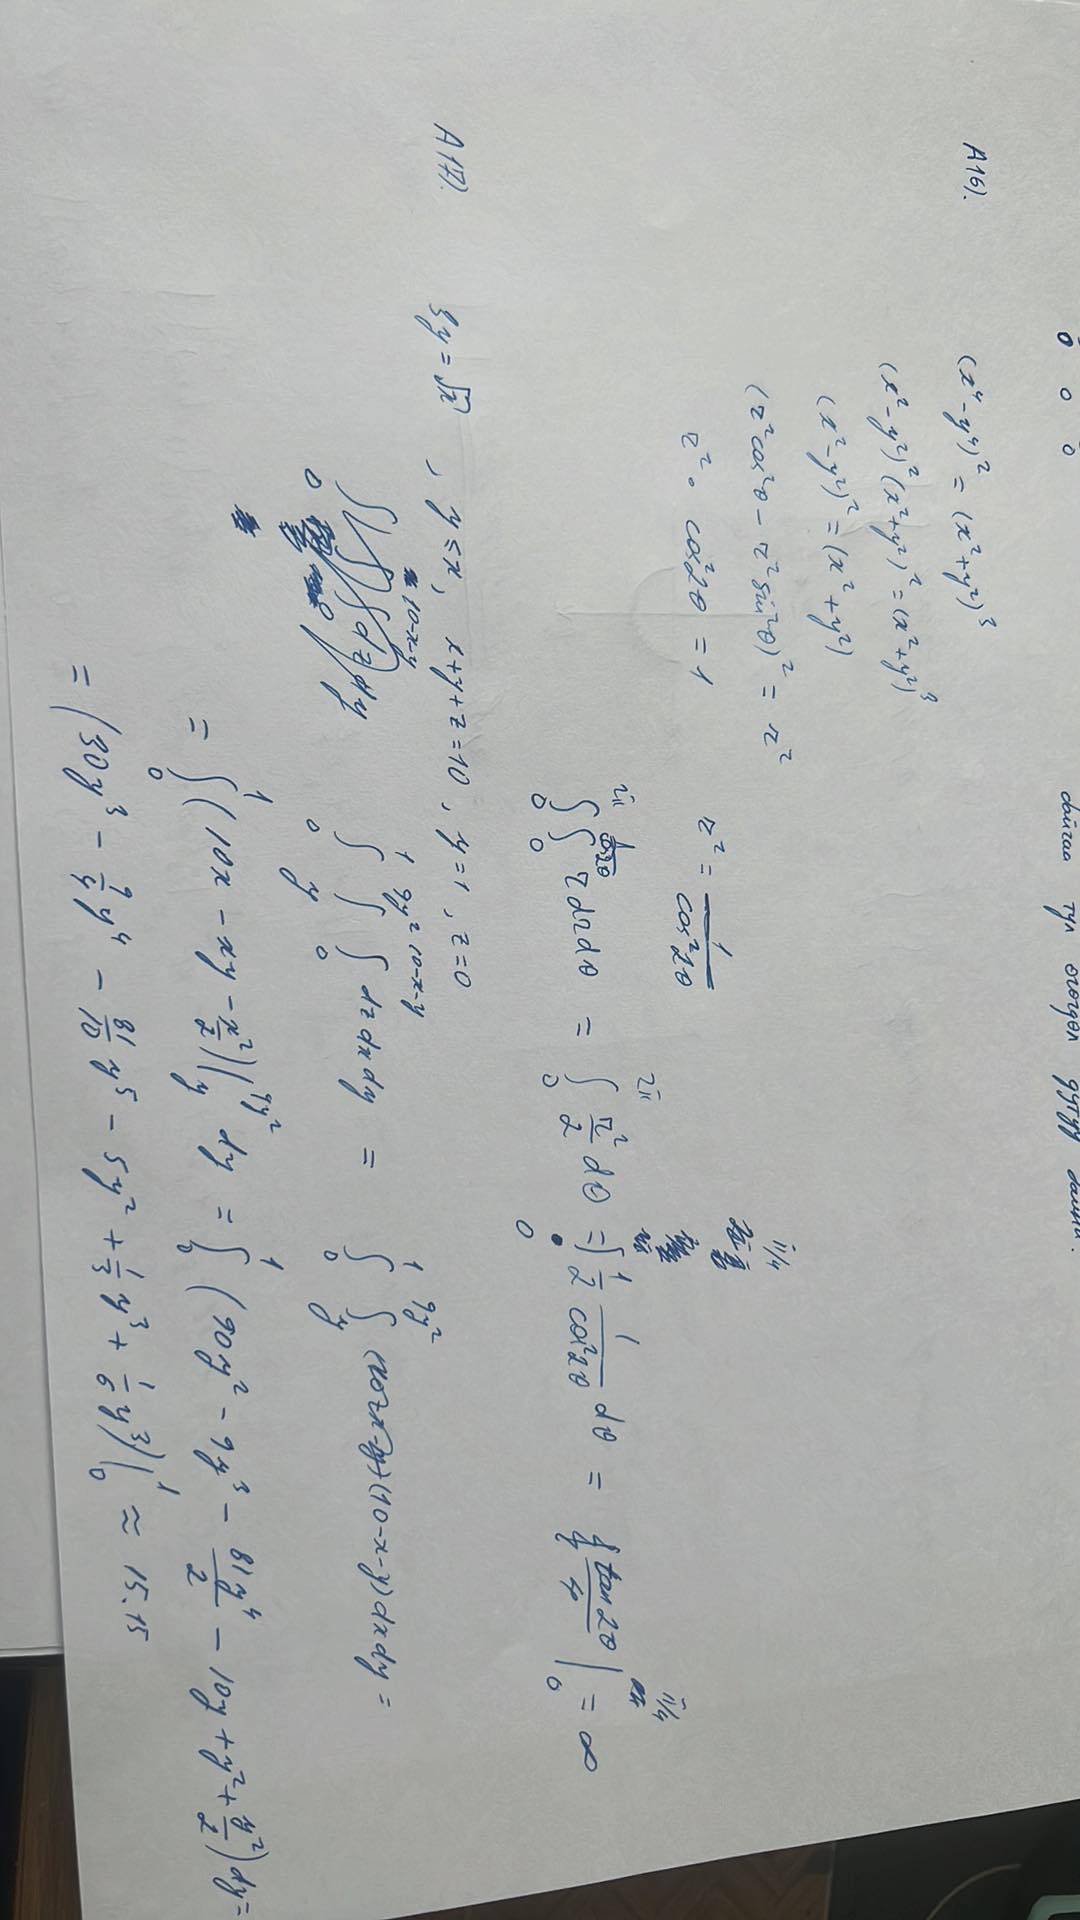 0 0 0 байгаа тул өгөгдөл дутуу байна.
A16). (x⁴-y⁴)² = (x²+y²)³
(x²-y²)²(x²+y²)² = (x²+y²)³
(x²-y²)² = (x²+y²)
(r²cos²θ - r²sin²θ)² = r²
r² · cos²2θ = 1 r² = 1/cos²2θ
∫₀^{2π} ∫₀^{1/cos2θ} r dr dθ = ∫₀^{2π} r²/2 dθ = ∫₀^{π/4} 1/2 1/cos²2θ dθ = tan2θ/4 |₀^{π/4} = ∞
A17). 3y = √x , y ≤ x, x+y+z=10 , y=1 , z=0
∫₀¹ ∫_y^{9y²} ∫₀^{10-x-y} dz dx dy = ∫₀¹ ∫_y^{9y²} (10-x-y) dx dy =
= ∫₀¹ (10x - xy - x²/2) |_y^{9y²} dy = ∫₀¹ (90y² - 9y³ - 81y⁴/2 - 10y + y² + y²/2) dy =
= (30y³ - 9/4 y⁴ - 81/10 y⁵ - 5y² + 1/3 y³ + 1/6 y³) |₀¹ ≈ 15.15